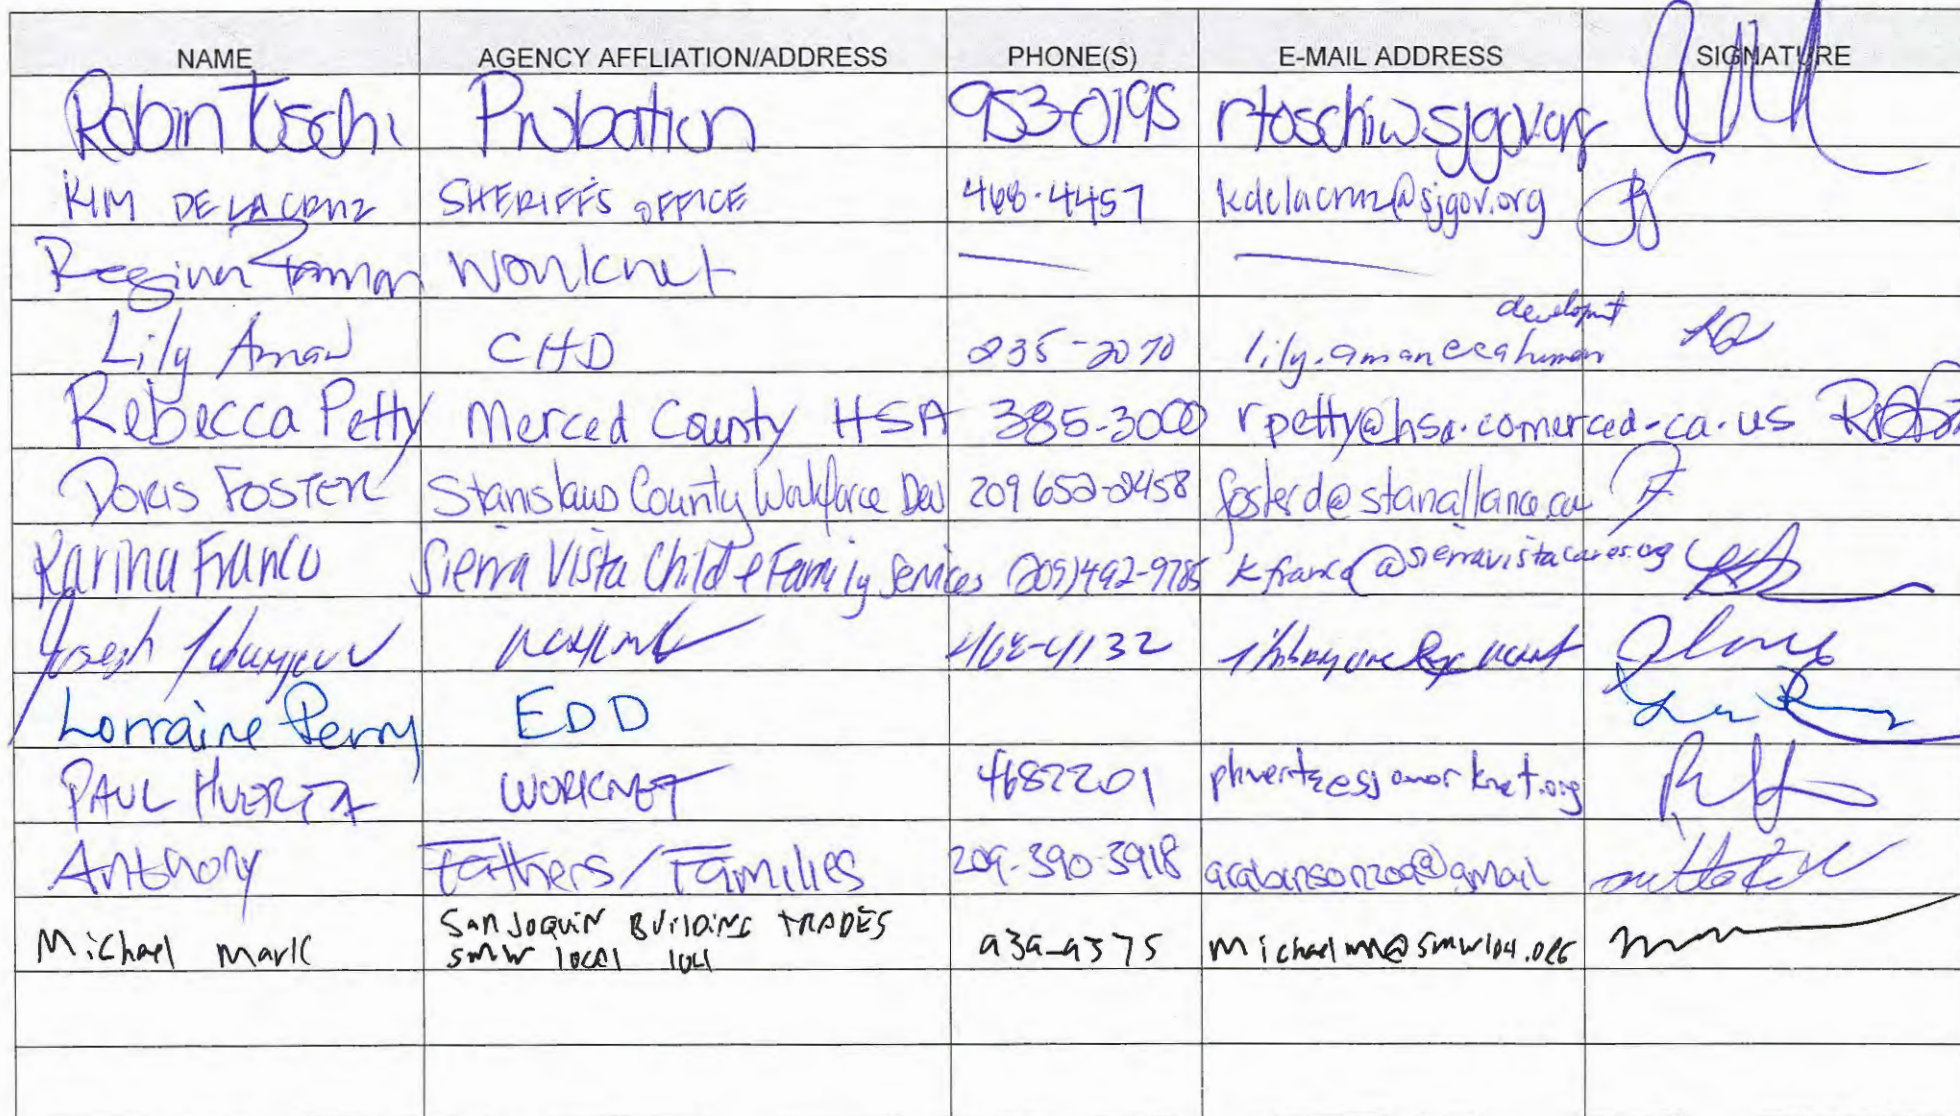 NAME AGENCY AFFLIATION/ADDRESS PHONE(S) E-MAIL ADDRESS SIGNATURE
Robin Toschi Probation 953-0195 rtoschi@sjgov.org
KIM DE LA CRUZ SHERIFF'S OFFICE 468-4457 kdelacruz@sjgov.org
Regina Worknet — —
developt
Lily Aman CHD 235-2070 lily.aman@cahuman
Rebecca Petty Merced County HSA 385-3000 rpetty@hsa.comerced-ca.us
DORIS FOSTER Stanislaus County Workforce Dev 209 652-2458 fosterd@
Karina Franco Sierra Vista Child & Family Services (209)492-9785 kfranco@sierravistacares.org
Joseph 468-4132
Lorraine Perry EDD
PAUL HUERTA WORKNET 4682201
Anthony Fathers/Families 209-390-3918
SAN JOAQUIN BUILDING TRADES
Michael Mark SMW local 104 939-9375 michaelm@smw104.org